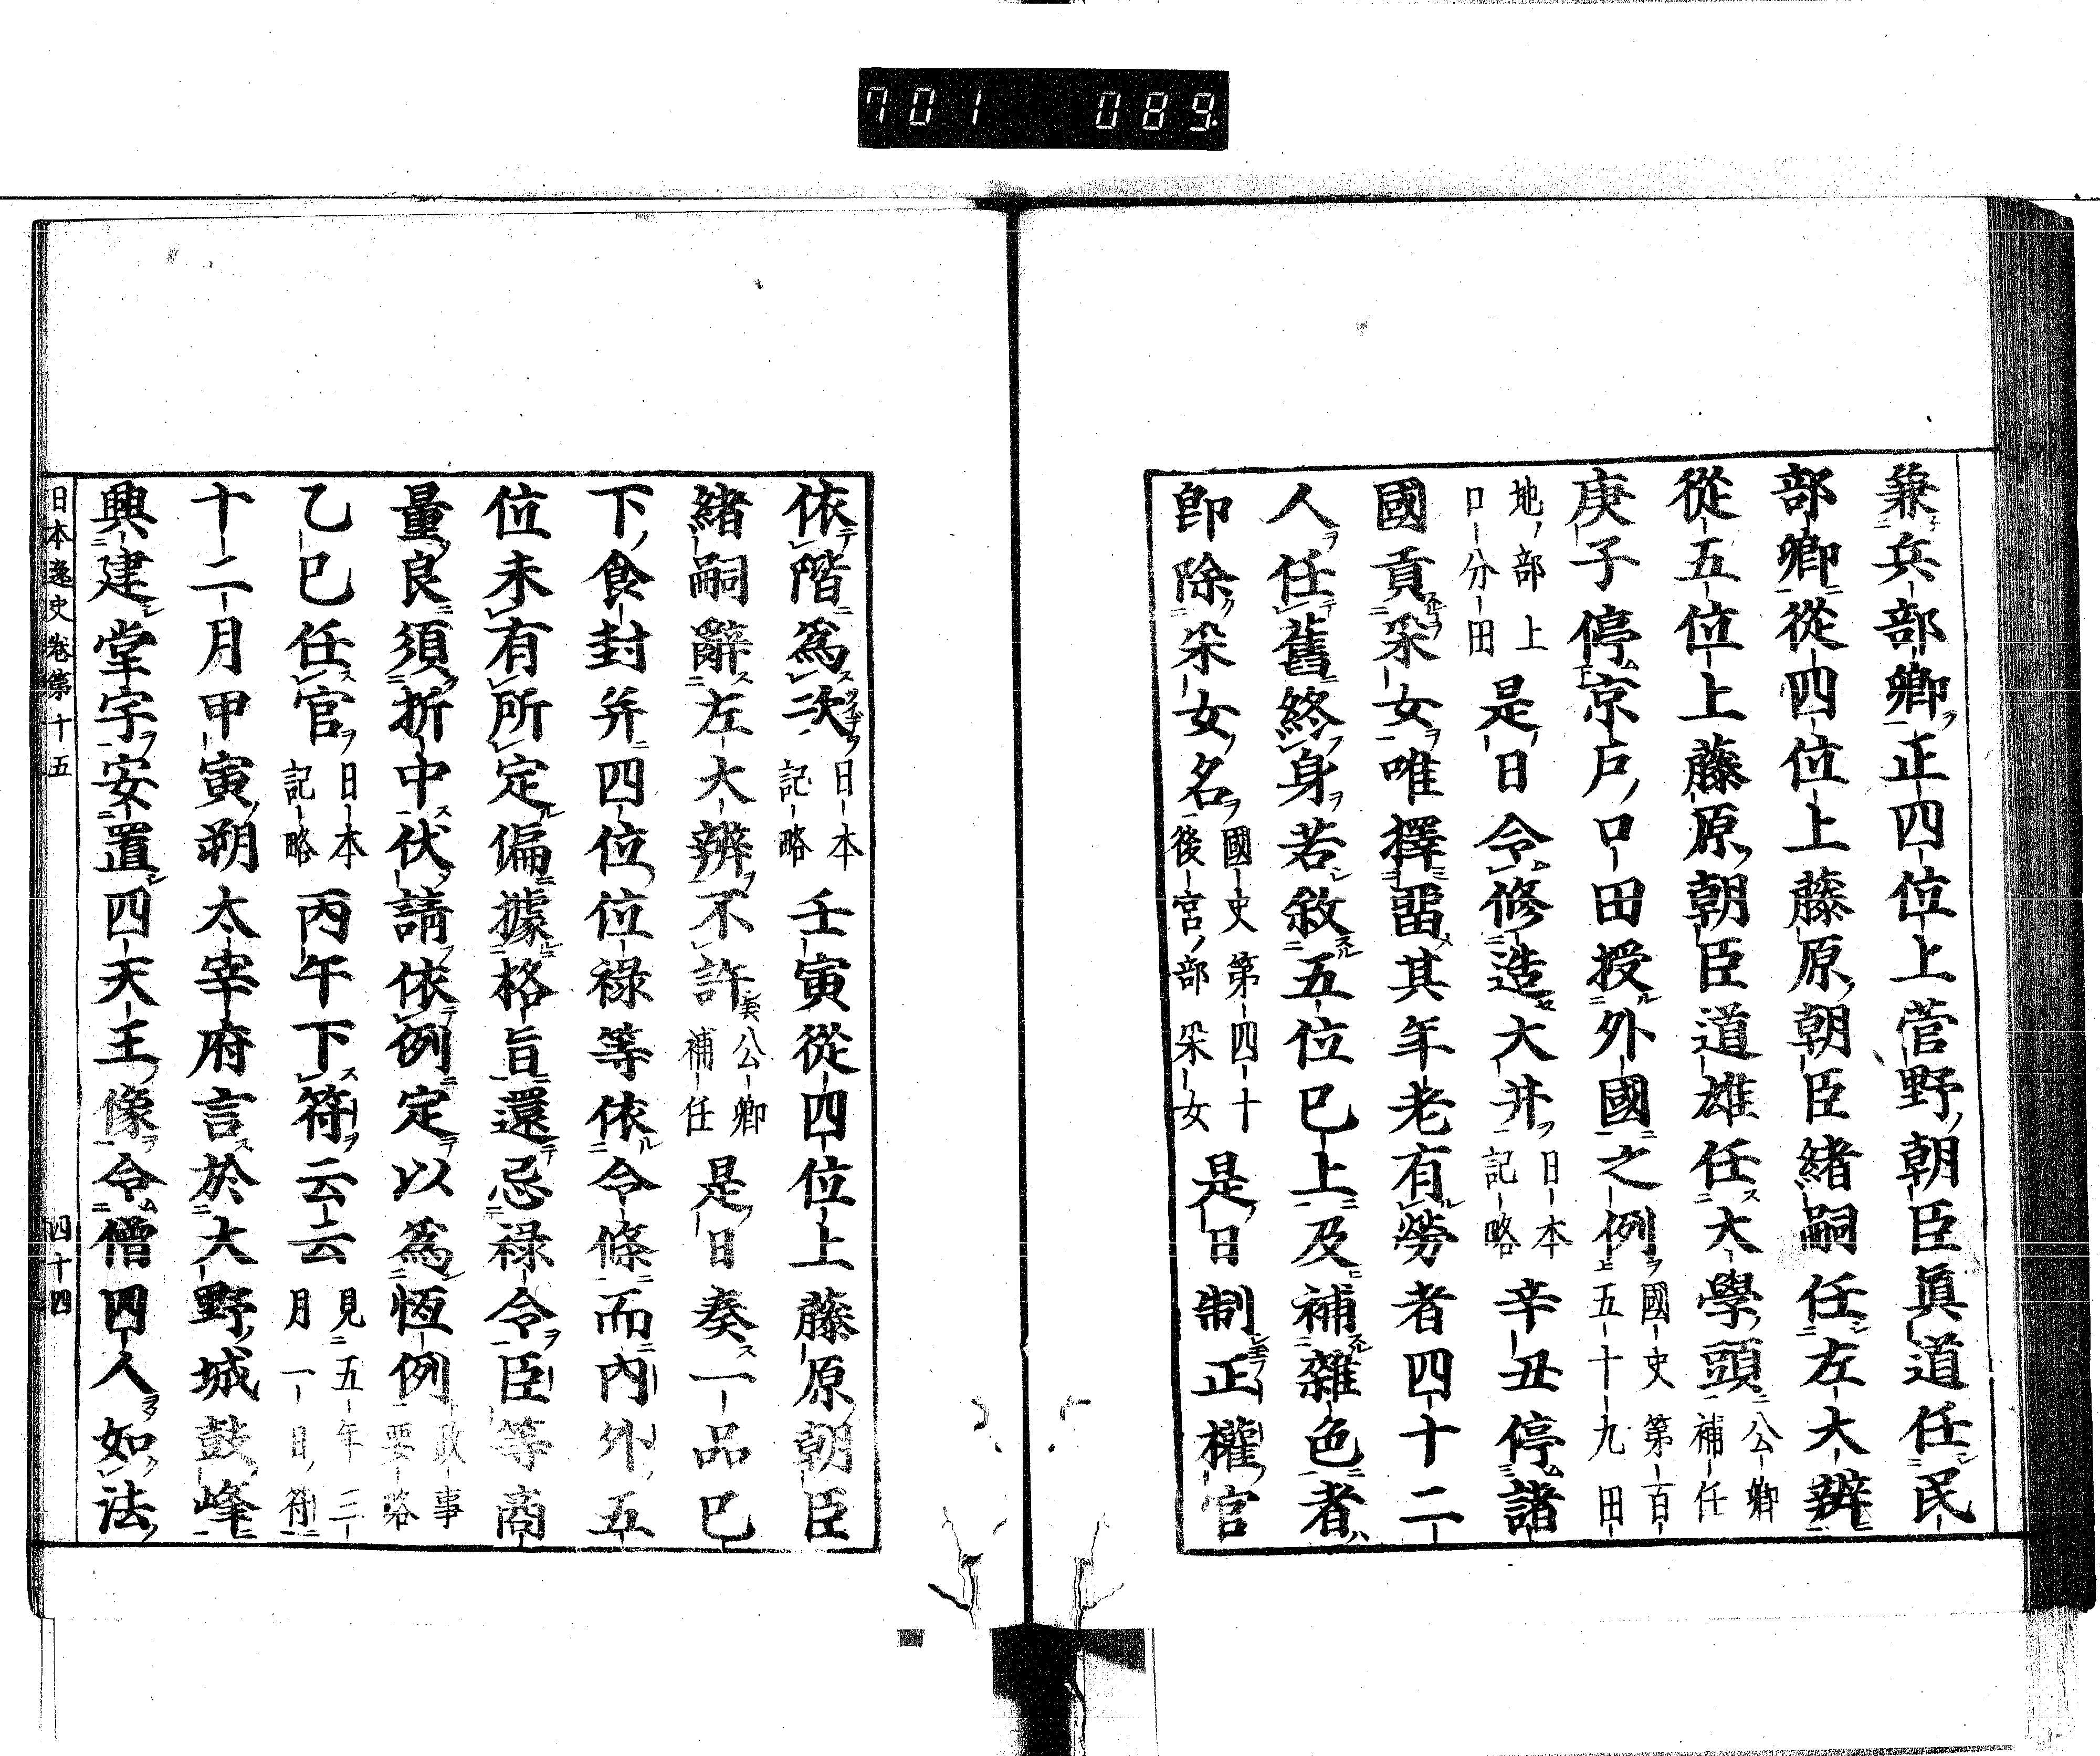 701 089.
兼兵部卿正四位上菅野朝臣眞道任民
部卿從四位上藤原朝臣緒嗣任左大辨
從五位上藤原朝臣道雄任大學頭公卿補任
庚子停京戶口田授外國之例國史第百五十九田
地部上口分田是日令修造大井日本記略辛丑停諸
國貢采女唯擇留其年老有勞者四十二
人任舊終身若敘五位已上及補雜色者
卽除采女名國史第四十後宮部采女是日制正權官
依階爲次日本記略壬寅從四位上藤原朝臣
緒嗣辭左大辨不許公卿補任是日奏一品已
下食封幷四位位祿等依令條而內外五
位未有所定偏據格旨還忌祿令臣等商
量良須折中伏請依例定以爲恆例政事要畧
乙巳任官日本記略丙午下符云云見五年三月一日符
十二月甲寅朔太宰府言於大野城鼓峰
興建堂宇安置四天王像令僧四人如法
日本逸史卷第十五 四十四